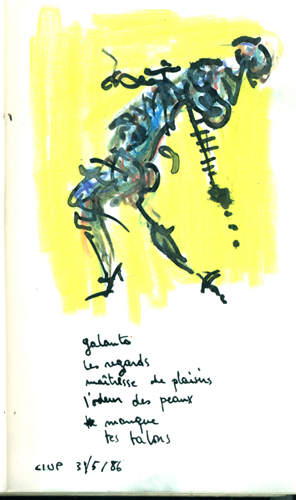 galante
les regards
maîtresse de plaisirs
l'odeur des peaux
manque
tes talons
CIUP 31/5/86